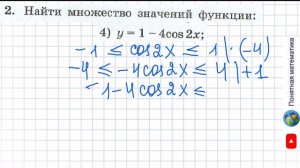 2. Найти множество значений функции:
4) y = 1 – 4cos 2x;
-1 ≤ cos2x ≤ 1 |·(-4)
-4 ≤ -4cos2x ≤ 4 |+1
1-4cos2x ≤
Понятная математика